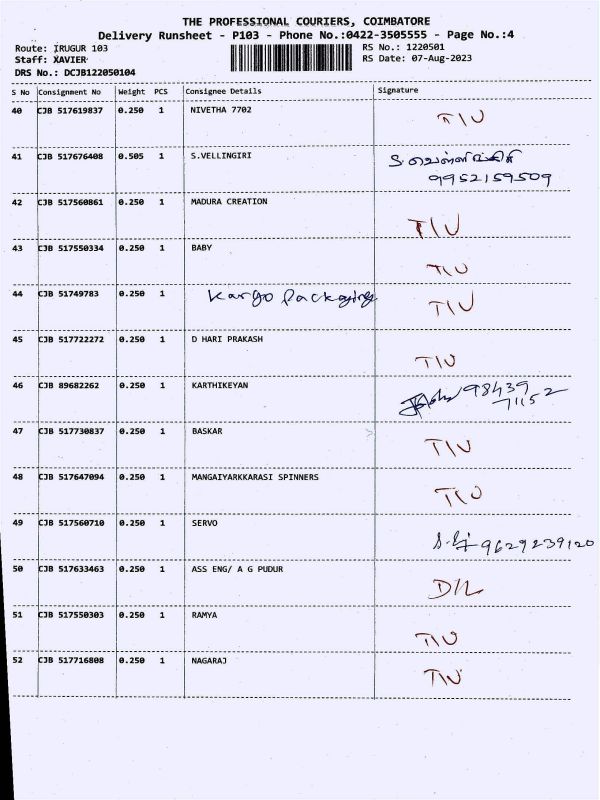 THE PROFESSIONAL COURIERS, COIMBATORE
Delivery Runsheet - P103 - Phone No.:0422-3505555 - Page No.:4
Route: IRUGUR 103 RS No.: 1220501
Staff: XAVIER RS Date: 07-Aug-2023
DRS No.: DCJB122050104
S No Consignment No Weight PCS Consignee Details Signature
40 CJB 517619837 0.250 1 NIVETHA 7702 TIU
41 CJB 517676408 0.505 1 S.VELLINGIRI S.வெள்ளிங்கிரி
9952159509
42 CJB 517560861 0.250 1 MADURA CREATION TIU
43 CJB 517550334 0.250 1 BABY TIU
44 CJB 51749783 0.250 1 Kargo Packaging TIU
45 CJB 517722272 0.250 1 D HARI PRAKASH TIU
46 CJB 89682262 0.250 1 KARTHIKEYAN 98439
71152
47 CJB 517730837 0.250 1 BASKAR TIU
48 CJB 517647094 0.250 1 MANGAIYARKKARASI SPINNERS TIU
49 CJB 517560710 0.250 1 SERVO 9629239120
50 CJB 517633463 0.250 1 ASS ENG/ A G PUDUR D/L
51 CJB 517550303 0.250 1 RAMYA TIU
52 CJB 517716808 0.250 1 NAGARAJ TIU